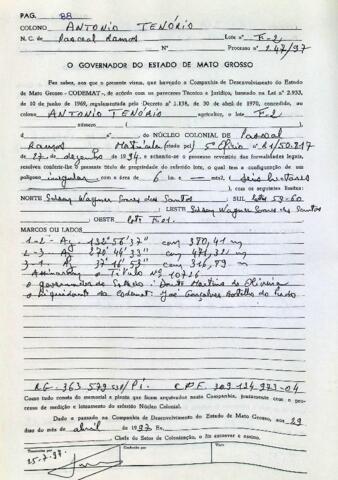 PAG. 88
COLONO ANTONIO TENÓRIO Lote n° F-2
N. C. de Pascoal Ramos N° Processo n° 247/97
O GOVERNADOR DO ESTADO DE MATO GROSSO
Faz saber, aos que o presente virem, que havendo a Companhia de Desenvolvimento do Estado
de Mato Grosso - CODEMAT-, de acordo com os pareceres Técnico e Jurídico, baseado na Lei n° 2.933,
de 10 de junho de 1969, regulamentada pelo Decreto n° 1.138, de 30 de abril de 1970, concedido, ao
colono ANTONIO TENÓRIO agricultor, o lote F-2
número ( )
do NÚCLEO COLONIAL DE Pascoal
Ramos Matricula 5° Ofício n° R1/50.217
de 27 de dezembro de 1994, e achando-se o processo revestido das formalidades legais,
resolveu conferir-lhe o presente título de propriedade do referido lote, o qual tem a configuração de um
polígono irregular com a área de 6 ha — mts2. ( seis hectares
), com os seguintes limites:
NORTE Gelson Wagner Soares dos Santos SUL lotes 59-60
LESTE Gelson Wagner Soares dos Santos
OESTE lote F-01.
MARCOS OU LADOS
1-2- Az 132°56'37" com 380,41 m
2-3- Az 270°44'33" com 471,32 m
3-1- Az 37°16'53" com 316,89 m
Assinaram o Titulo N° 10726
o governador do Estado: Dante Martins de Oliveira
o liquidante da Codemat: José Gonçalves Botelho do Prado
RG- 363 579 SSP/Pi. CPF 309 124 973-04
Tudo como consta do memorial e planta que ficam arquivados nesta Companhia, juntamente com o pro-
cesso de medição e loteamento do referido Núcleo Colonial.
Dado e passado na Companhia de Desenvolvimento do Estado de Mato Grosso, aos 29
dias do mês de abril de 1997 Eu,
, Chefe do Setor de Colonização, o fiz escrever e assino.
Conferido por
Visto
25-7-97.